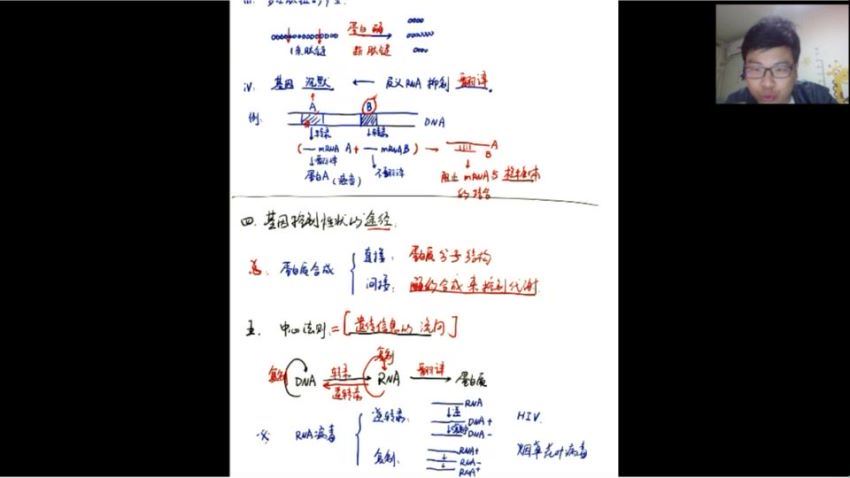 蛋白酶
1条肽链 断肽链
iv. 基因沉默 ← 反义RNA抑制翻译。
A B
例: DNA
↓转录 ↓转录
(— mRNA A + — mRNA B) → A B
↓翻译 不翻译
蛋白A(有害) 阻止mRNA与核糖体的结合
四. 基因控制性状的途径:
总: 蛋白质合成 { 直接: 蛋白质分子结构
间接: 酶的合成来控制代谢
五. 中心法则 = [遗传信息的流向]
复制 DNA 转录 逆转录 RNA 复制 翻译 蛋白质
RNA病毒 { 逆转录: RNA ↓逆 DNA+ ↓ DNA- HIV.
复制: RNA+ ↓ RNA- ↓ RNA+ 烟草花叶病毒